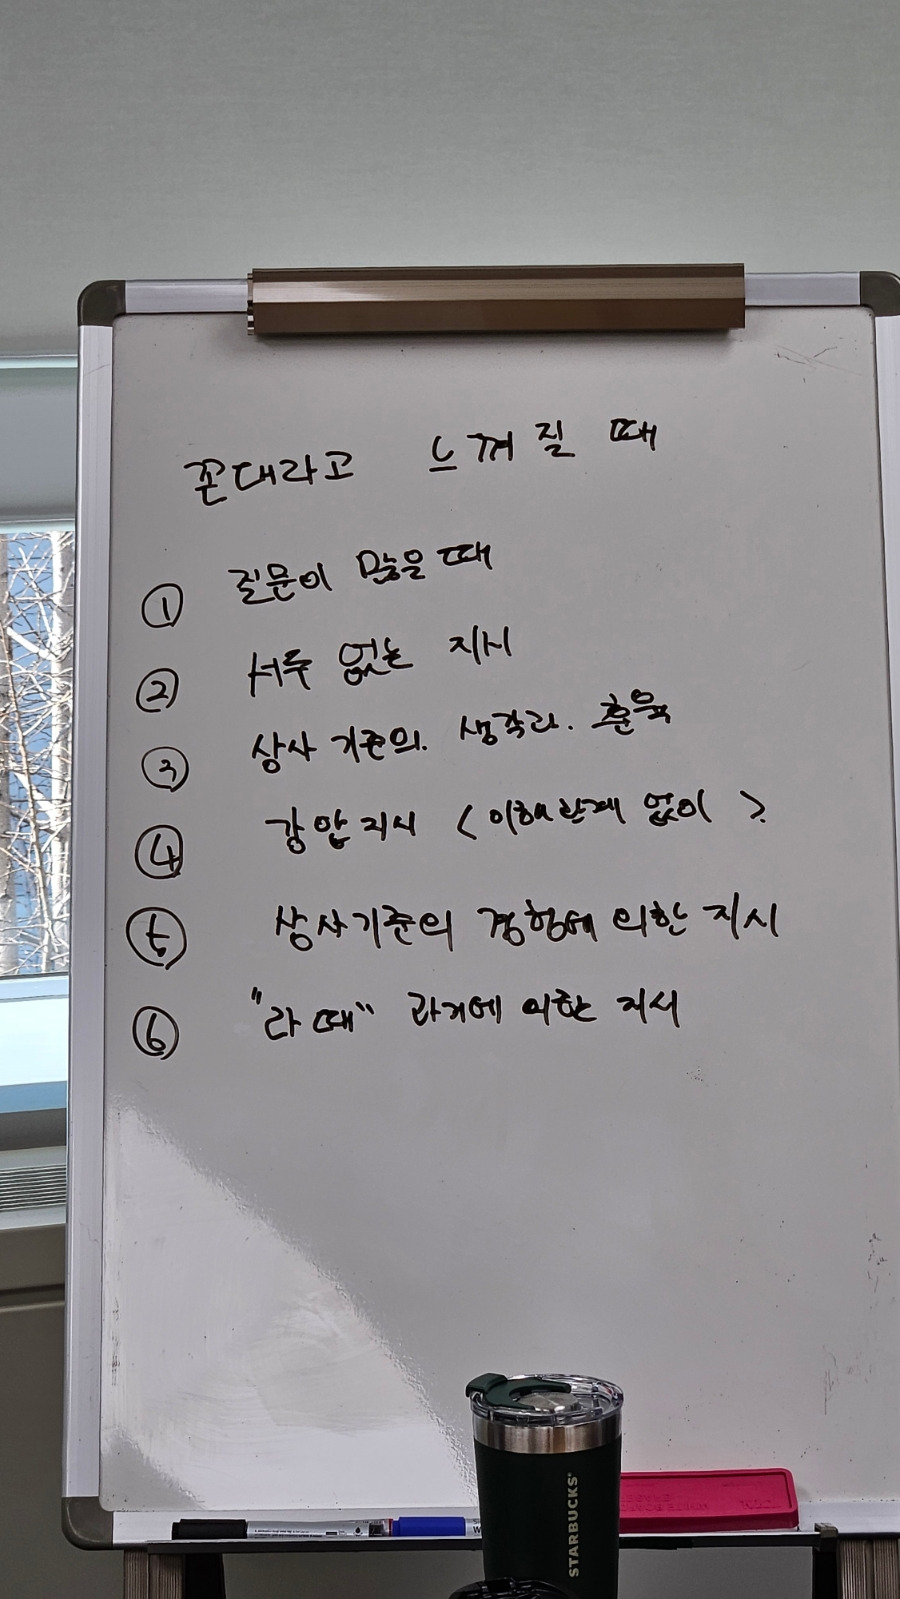 꼰대라고 느껴질 때
① 질문이 많을 때
② 서두 없는 지시
③ 상사 기준의. 생각과. 훈육
④ 강압지시 <이해관계 없이>.
⑤ 상사기준의 경험에 의한 지시
⑥ "라떼" 과거에 의한 지시
STARBUCKS